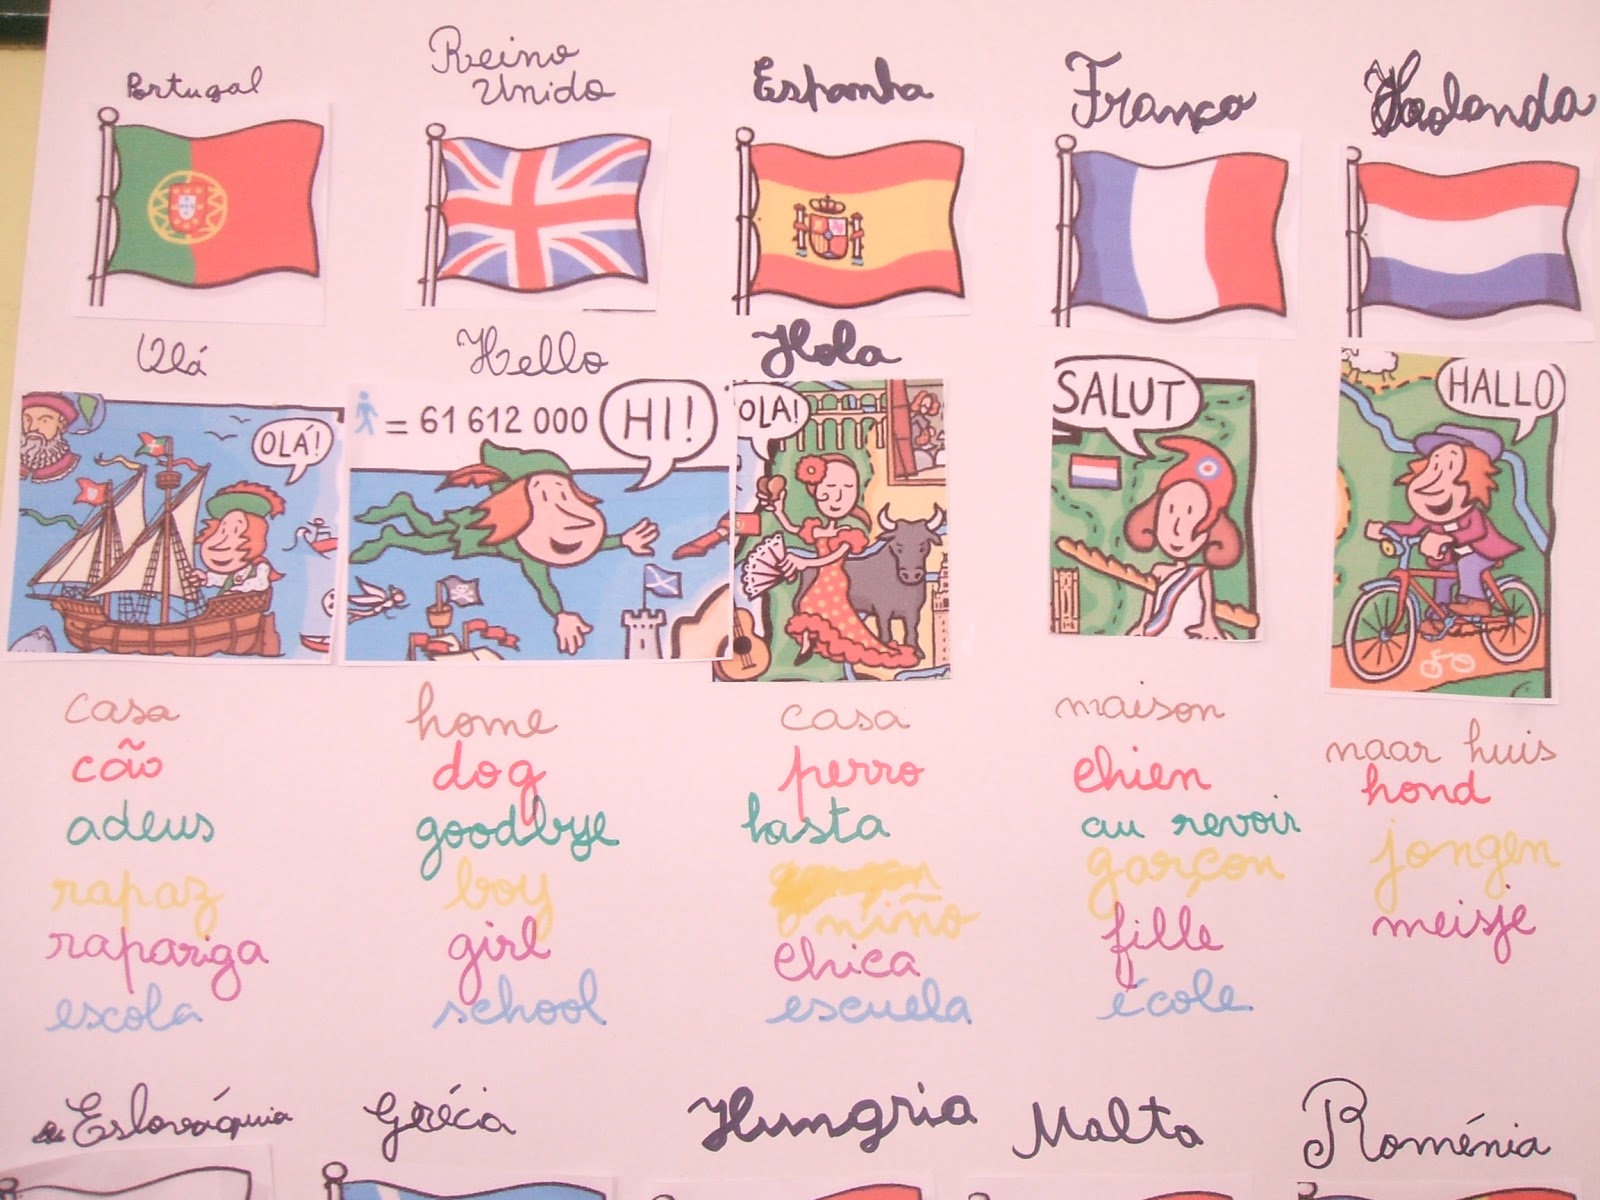 Portugal
Reino
Unido
Espanha
França
Holanda
Olá
Hello
Hola
OLÁ!
= 61 612 000
HI!
OLA!
SALUT
HALLO
casa
cão
adeus
rapaz
rapariga
escola
home
dog
goodbye
boy
girl
school
casa
perro
hasta
niño
chica
escuela
maison
chien
au revoir
garçon
fille
école
naar huis
hond
jongen
meisje
Eslováquia
Grécia
Hungria
Malta
Roménia